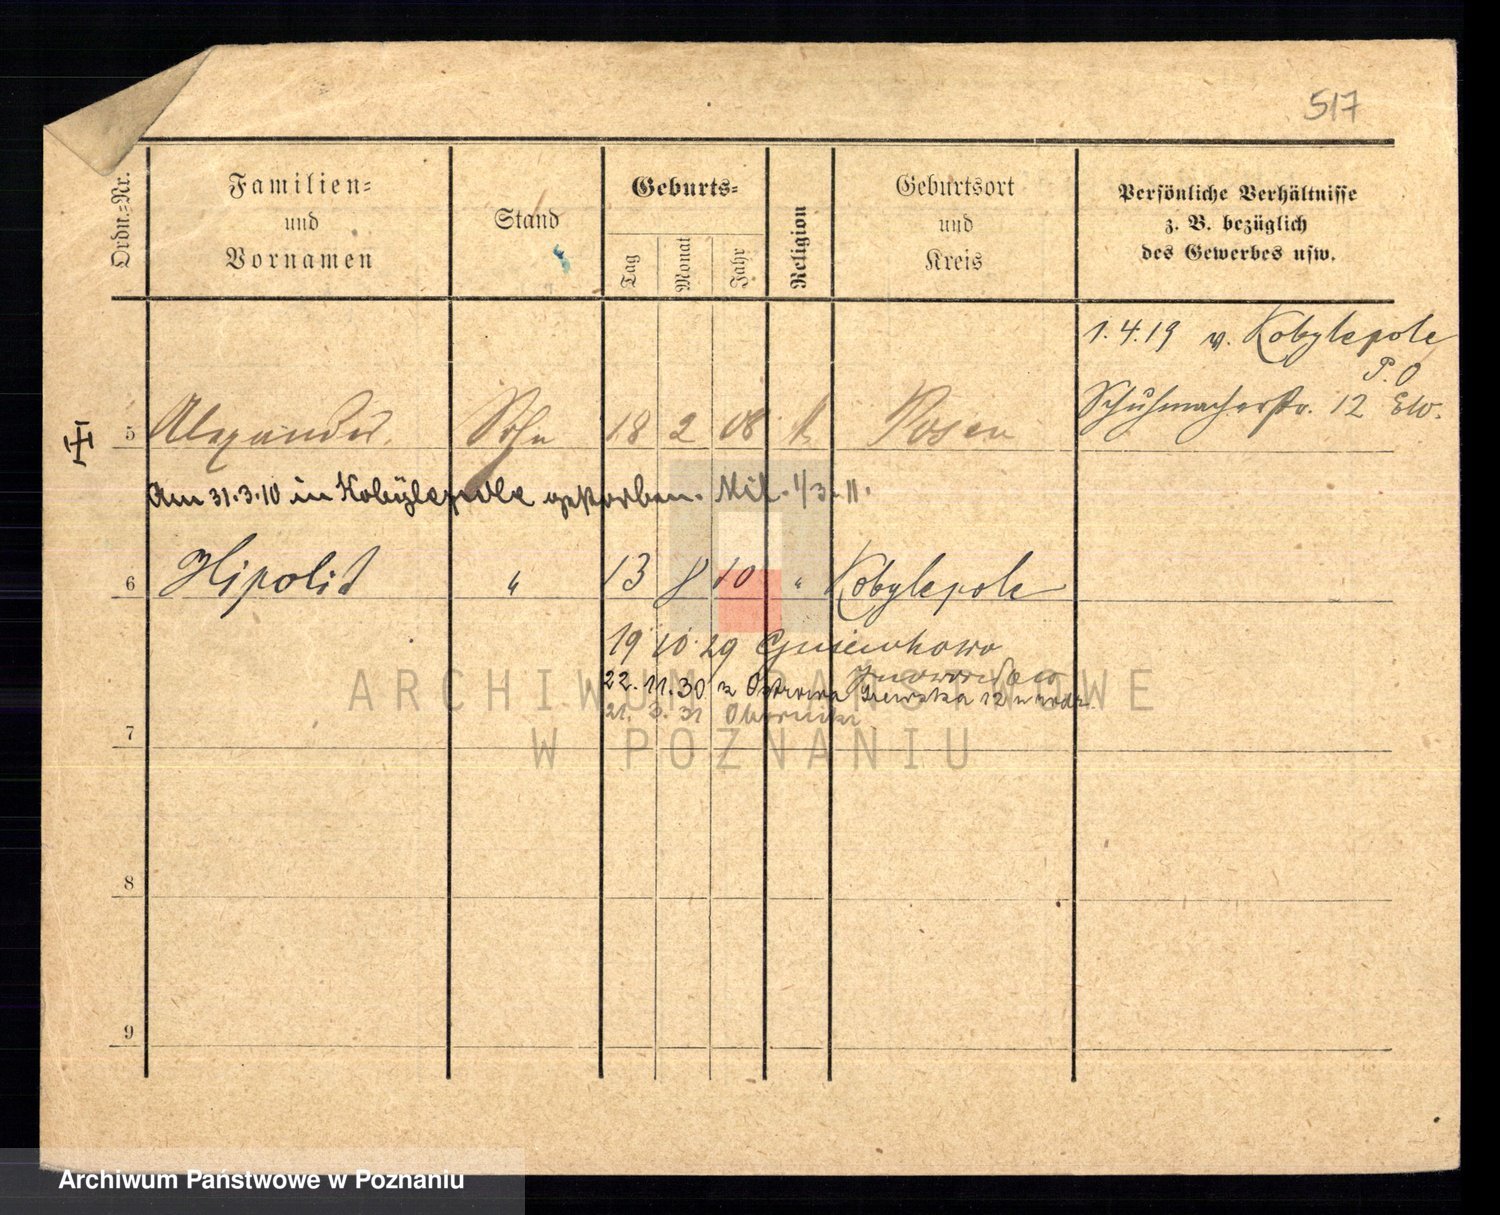 517
Ordn.-Nr.
Familien-
und
Vornamen
Stand
Geburts-
Tag
Monat
Jahr
Religion
Geburtsort
und
Kreis
Persönliche Verhältnisse
z. B. bezüglich
des Gewerbes usw.
1.4.19 v. Kobylepole
P.O
Schuhmacherstr. 12
5 Alexander Sohn 18 2 08 k Posen
Am 31.3.10 in Kobylepole gestorben. Mil. 1/3.11.
6 Hipolit " 13 8 10 " Kobylepole
19 10 29
22.11.30 z Ostrowa 12
21. 3. 31 Oborniki
7
8
9
ARCHIWUM PAŃSTWOWE
W POZNANIU
Archiwum Państwowe w Poznaniu